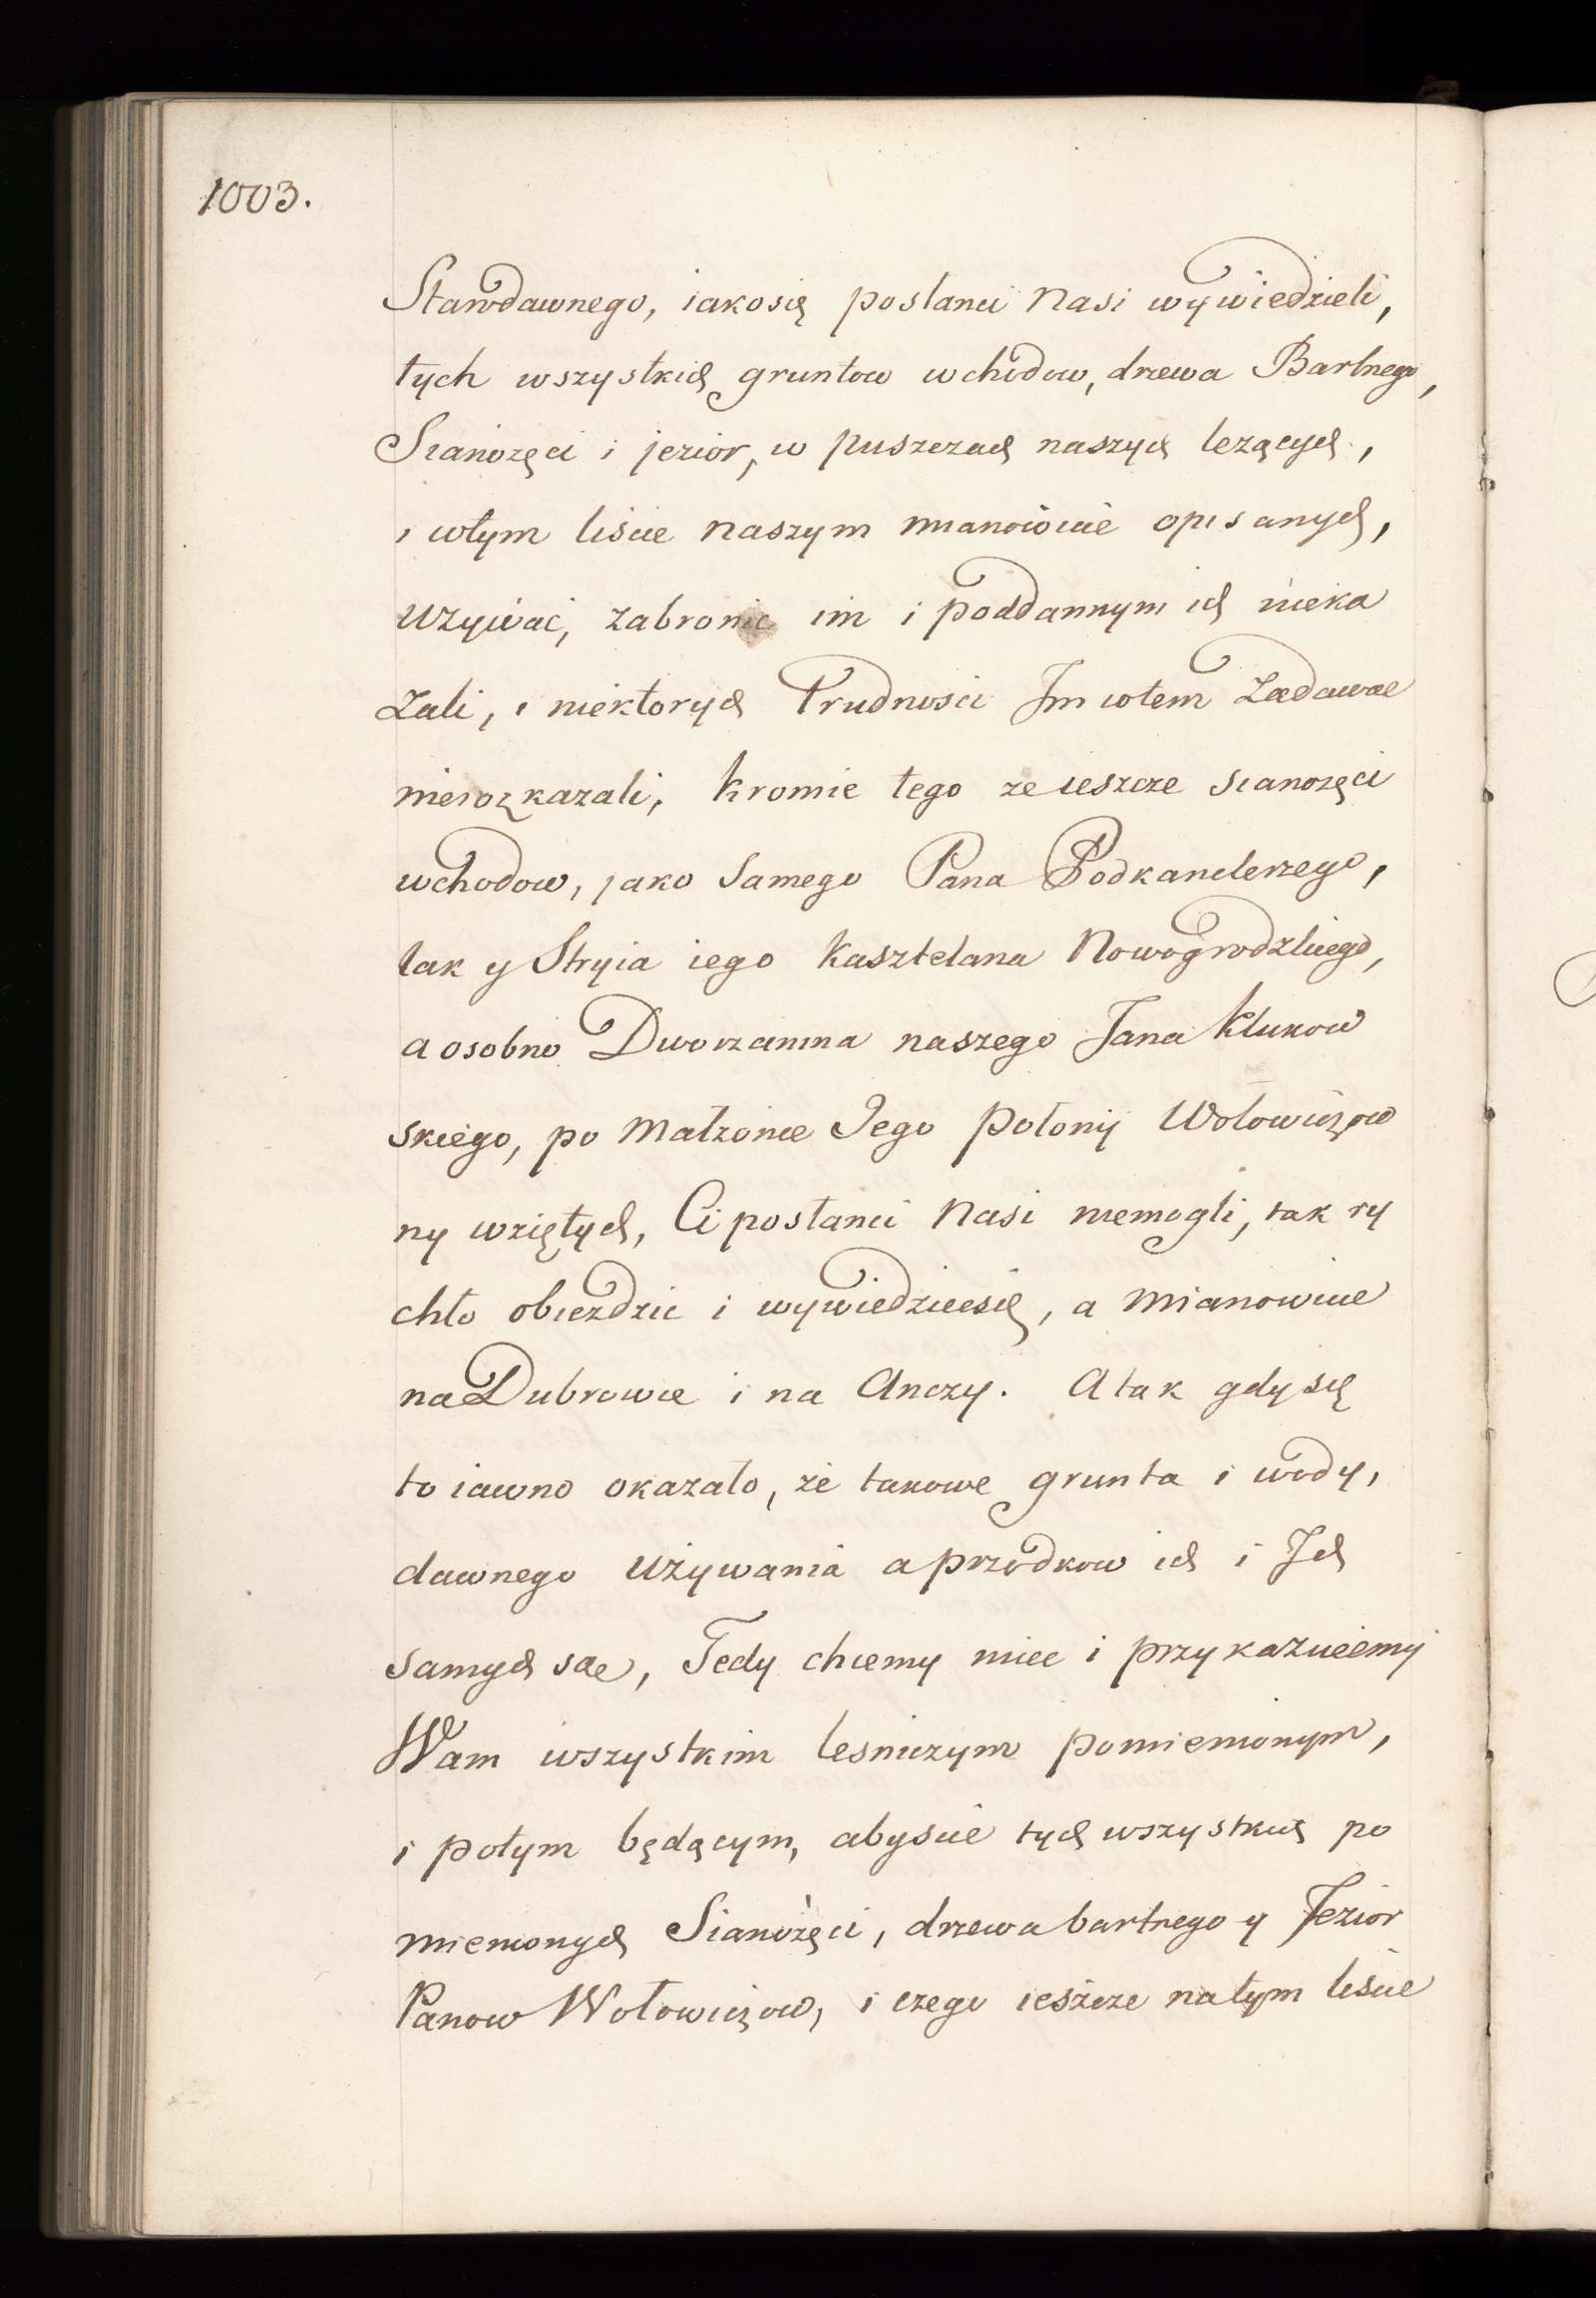 1003.
Starodawnego, iakosię poslanci Nasi wywiedzieli,
tych wszystkich gruntow wchodow, drzewa Bartnego,
Sianożęci i jezior, w puszczach naszych leżących,
i wtym liście Naszym mianowicie opisanych,
używać, zabronic im i poddannym ich nieka
zali, i niektorych Trudnosci Im wtem Zadawac
nierozkazali, kromie tego ze ieszcze sianozęci
wchodow, jako Samego Pana Podkanclerzego,
tak y Stryia iego Kasztelana Nowogrodzkiego,
a osobno Dworzanina naszego Jana Klukow
skiego, po Małzonce Jego Połonij Wołowiczow
ny wziętych, Ci posłanci Nasi niemogli, tak ry
chło obiezdzic i wywiedziecsię, a mianowicie
na Dubrowce i na Anczy. A tak gdy się
to iawno okazało, że takowe grunta i wody,
dawnego używania a przodkow ich i Ich
samych sae, Tedy chcemy miec i przykazuiemy
Wam wszystkim lesniczym pomienionym,
i potym będącym, abyscie tych wszystkich po
mienionych Sianożęci, drzewa bartnego y Jezior
Panow Wołowiczow, i czego ieszcze natym liście